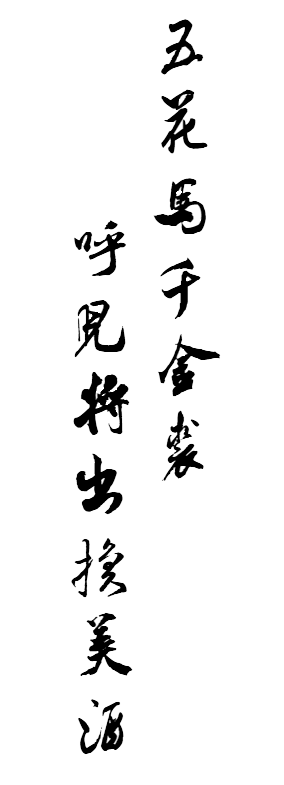 五花馬千金裘
呼児將出換美酒